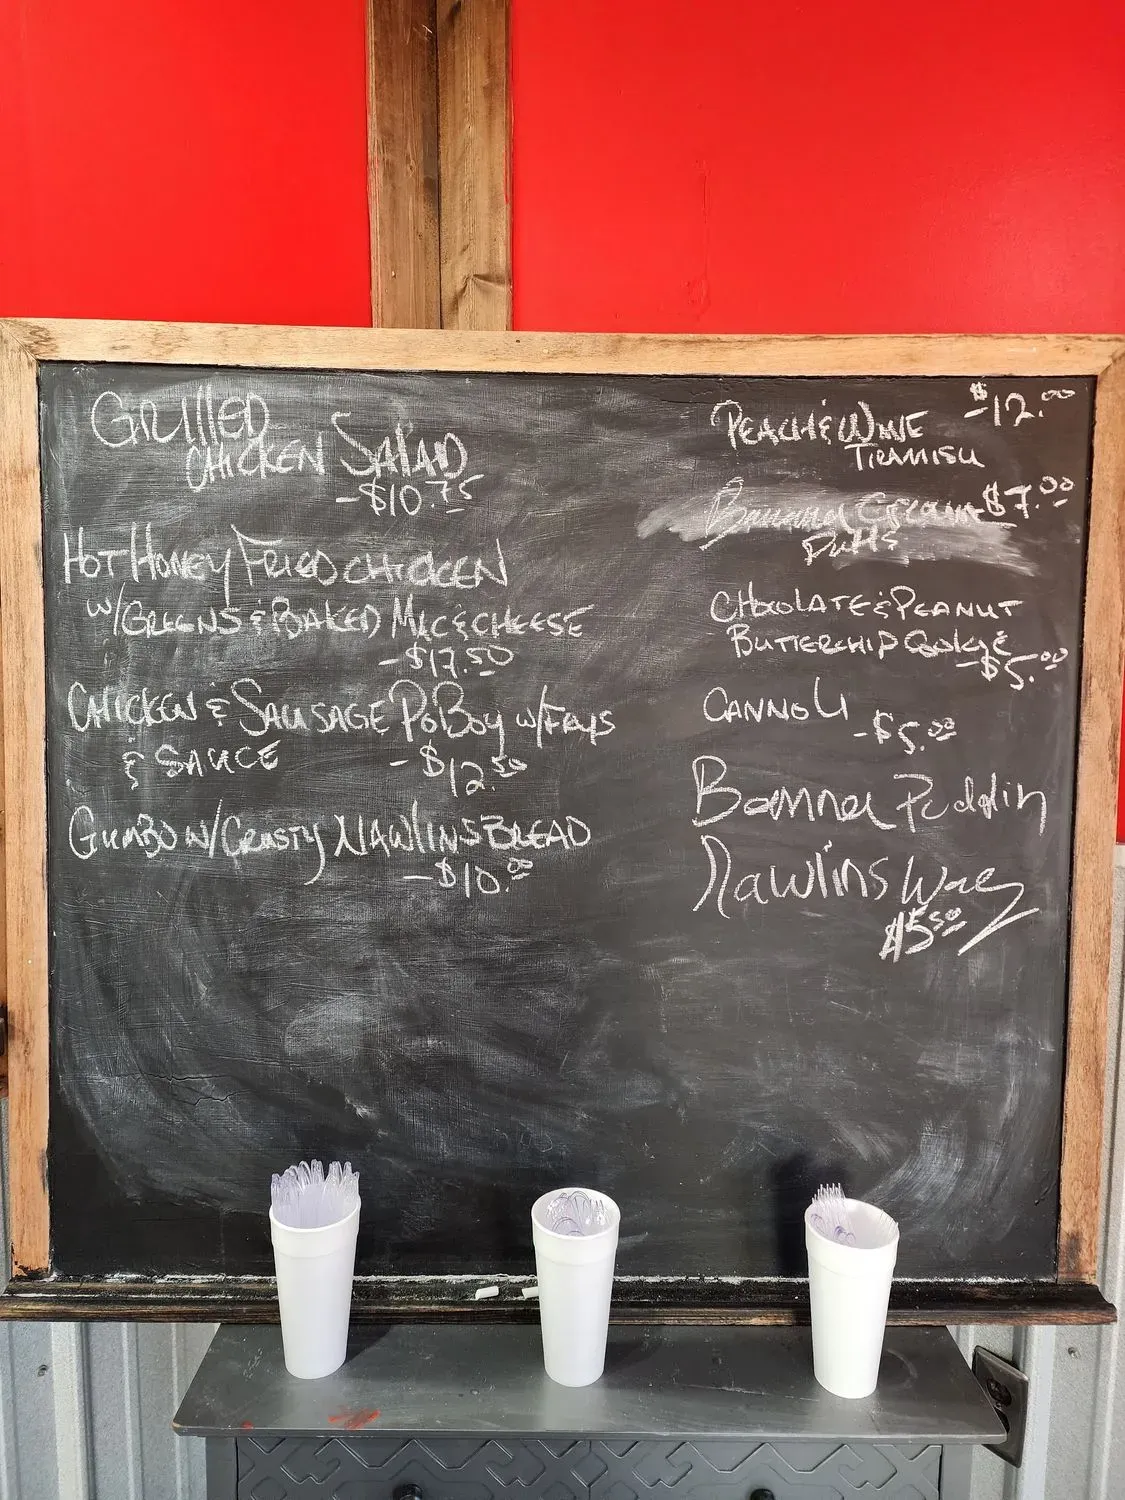 GRILLED
CHICKEN SALAD
-$10.75
HOT HONEY FRIED CHICKEN
W/GREENS & BAKED MAC & CHEESE
-$17.50
CHICKEN & SAUSAGE PO BOY W/FRYS
& SAUCE -$12.50
GUMBO W/CRUSTY NAWLINS BREAD
-$10.00
PEACH & WINE -$12.00
TIRAMISU
Banana Cream $7.00
Puffs
CHOCOLATE & PEANUT
BUTTERCHIP COOKIE
-$5.00
CANNOLI
-$5.00
Banana Puddin
Nawlins Way
$5.50